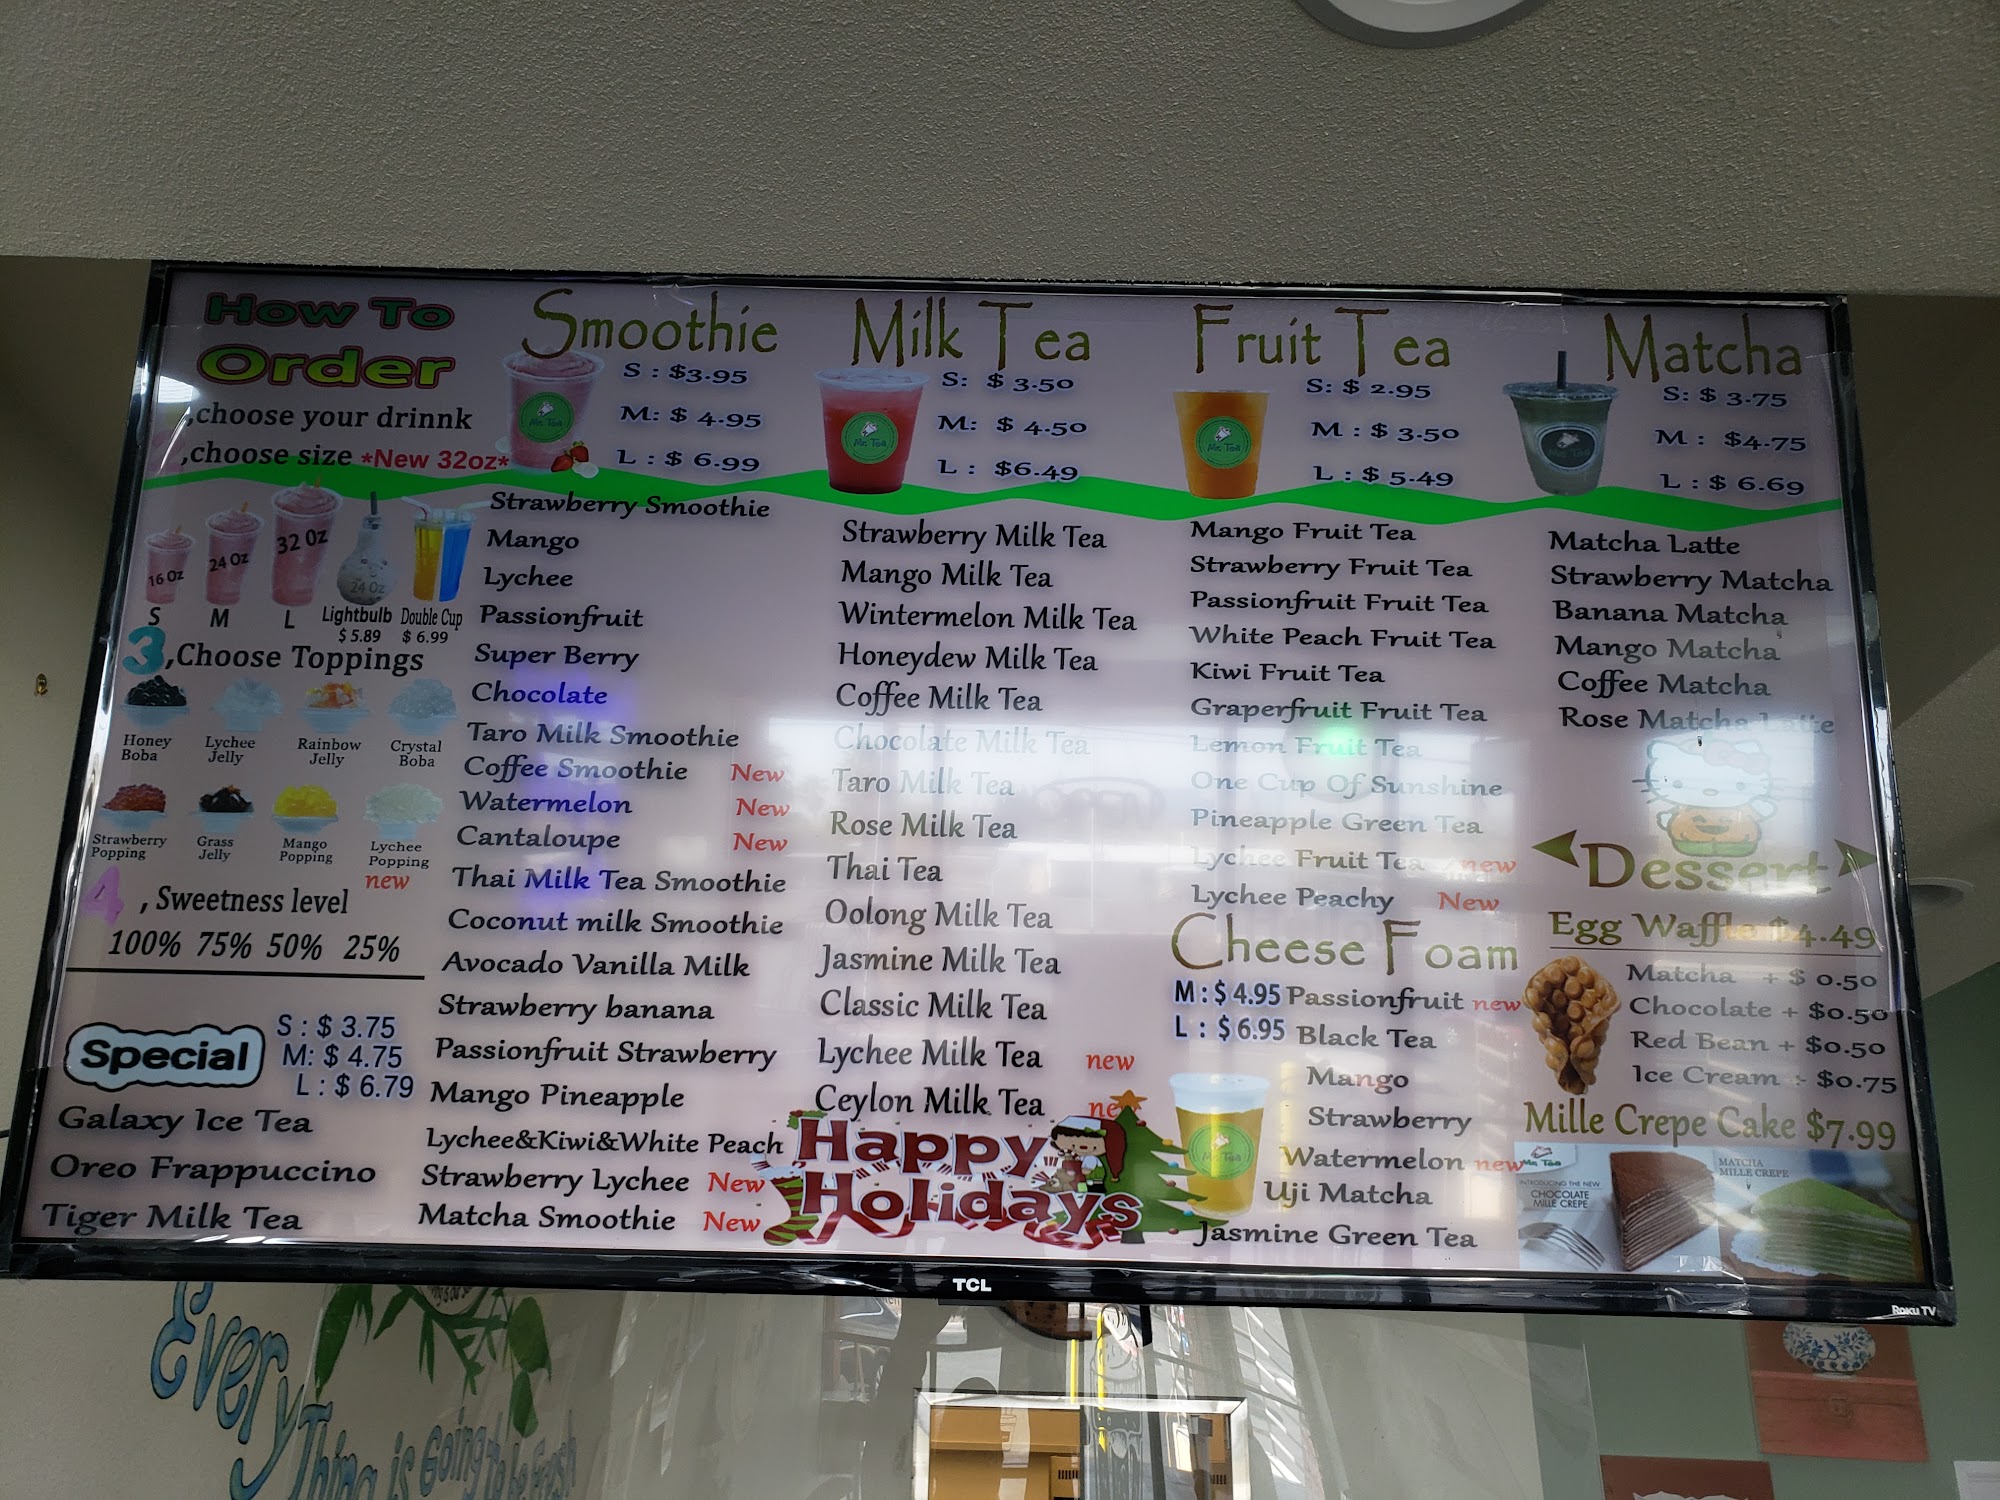 How To
Order
,choose your drinnk
,choose size *New 32oz*
16 Oz
24 Oz
32 Oz
24 Oz
S
M
L
Lightbulb
$ 5.89
Double Cup
$ 6.99
3,Choose Toppings
Honey
Boba
Lychee
Jelly
Rainbow
Jelly
Crystal
Boba
Strawberry
Popping
Grass
Jelly
Mango
Popping
Lychee
Popping
new
4, Sweetness level
100% 75% 50% 25%
Special
S : $ 3.75
M: $ 4.75
L : $ 6.79
Galaxy Ice Tea
Oreo Frappuccino
Tiger Milk Tea
Smoothie
S : $3.95
M: $ 4.95
L : $ 6.99
Mr. Tea
Strawberry Smoothie
Mango
Lychee
Passionfruit
Super Berry
Chocolate
Taro Milk Smoothie
Coffee Smoothie New
Watermelon New
Cantaloupe New
Thai Milk Tea Smoothie
Coconut milk Smoothie
Avocado Vanilla Milk
Strawberry banana
Passionfruit Strawberry
Mango Pineapple
Lychee&Kiwi&White Peach
Strawberry Lychee New
Matcha Smoothie New
Milk Tea
S: $ 3.50
M: $ 4.50
L : $6.49
Mr. Tea
Strawberry Milk Tea
Mango Milk Tea
Wintermelon Milk Tea
Honeydew Milk Tea
Coffee Milk Tea
Chocolate Milk Tea
Taro Milk Tea
Rose Milk Tea
Thai Tea
Oolong Milk Tea
Jasmine Milk Tea
Classic Milk Tea
Lychee Milk Tea new
Ceylon Milk Tea new
Happy
Holidays
Fruit Tea
S: $ 2.95
M : $ 3.50
L : $ 5.49
Mr. Tea
Mango Fruit Tea
Strawberry Fruit Tea
Passionfruit Fruit Tea
White Peach Fruit Tea
Kiwi Fruit Tea
Graperfruit Fruit Tea
Lemon Fruit Tea
One Cup Of Sunshine
Pineapple Green Tea
Lychee Fruit Tea new
Lychee Peachy New
Cheese Foam
M : $ 4.95 Passionfruit new
L : $ 6.95 Black Tea
Mango
Strawberry
Watermelon new
Uji Matcha
Jasmine Green Tea
Mr. Tea
Matcha
S: $ 3.75
M : $4.75
L : $ 6.69
Mr. Tea
Matcha Latte
Strawberry Matcha
Banana Matcha
Mango Matcha
Coffee Matcha
Rose Matcha Latte
Dessert
Egg Waffle $4.49
Matcha + $ 0.50
Chocolate + $0.50
Red Bean + $0.50
Ice Cream + $0.75
Mille Crepe Cake $7.99
Mr. Tea
INTRODUCING THE NEW
CHOCOLATE
MILLE CREPE
MATCHA
MILLE CREPE
TCL
Roku TV
Every
Thing is Going to be Fresh